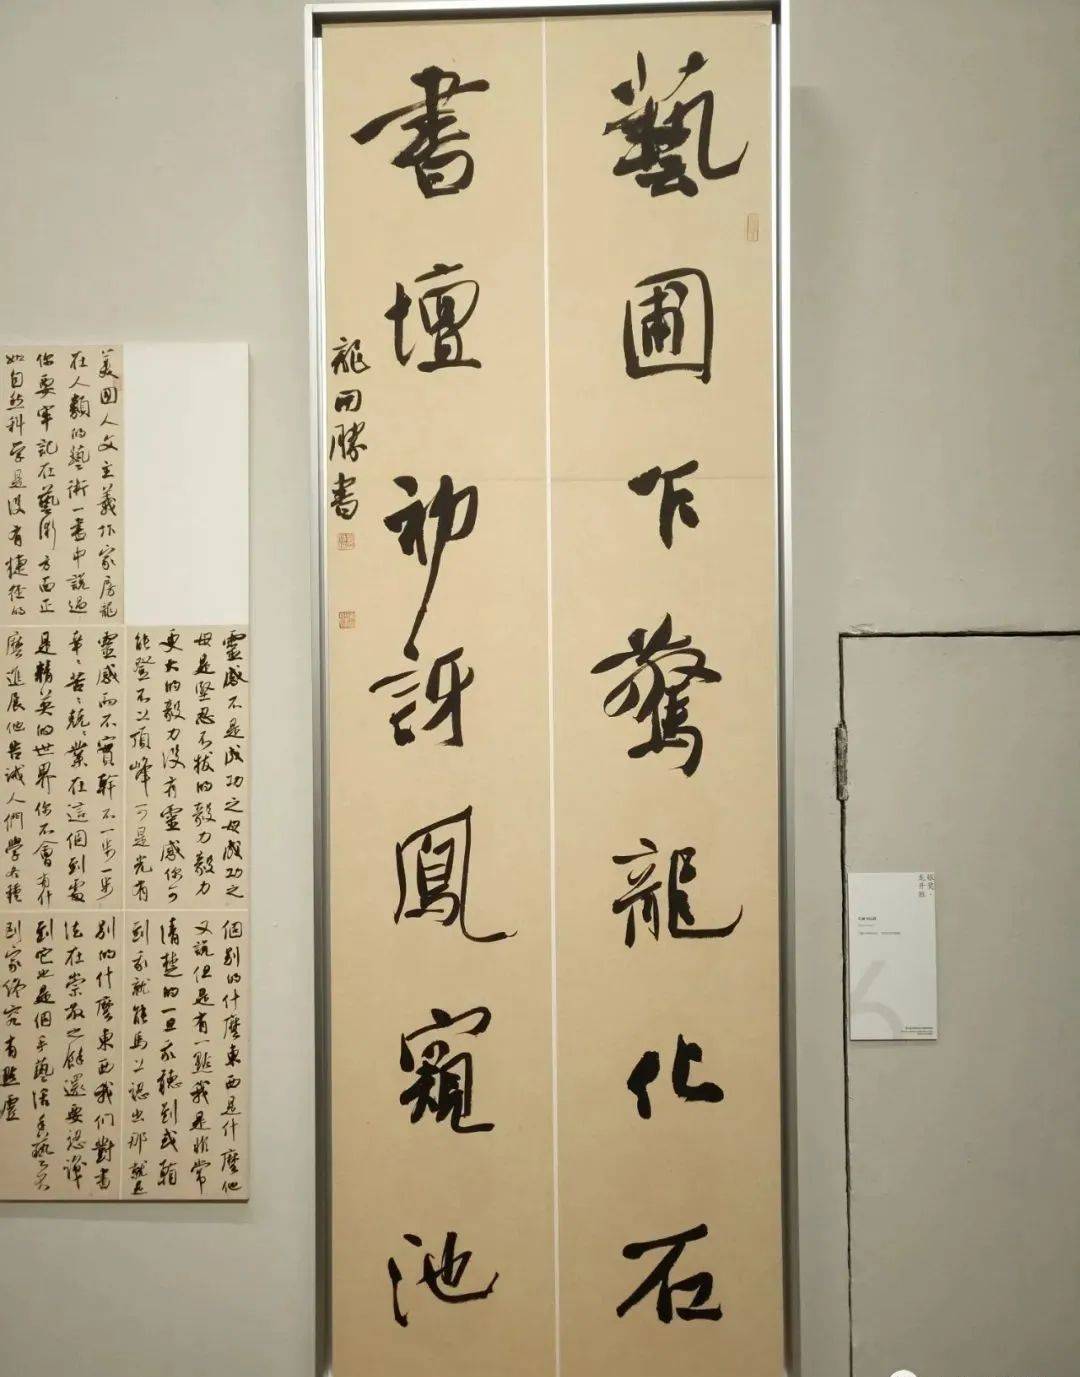 藝圃乍驚龍化石
書壇初訝鳳窺池
龍開勝書
美國人文主義作家房龍
在人類的藝術一書中說過
你要牢記在藝術方面正
如自然科學是沒有捷徑的
靈感不是成功之母成功之
母是堅忍不拔的毅力毅力
更大的毅力沒有靈感你可
能登不上頂峰可是光有
靈感而不實幹不一步一步
辛〻苦〻兢〻業在這個到處
是精英的世界你不會有什
麼進展他告誡人們學各種
個別的什麼東西是什麼他
又說但是有一點我是非常
清楚的一旦我聽到或
到我就能馬上認出那就是
別的什麼東西我們對書
法在崇敬之餘還要認
到它也是個手藝活
到家終究有點虛
银奖·
龙开胜